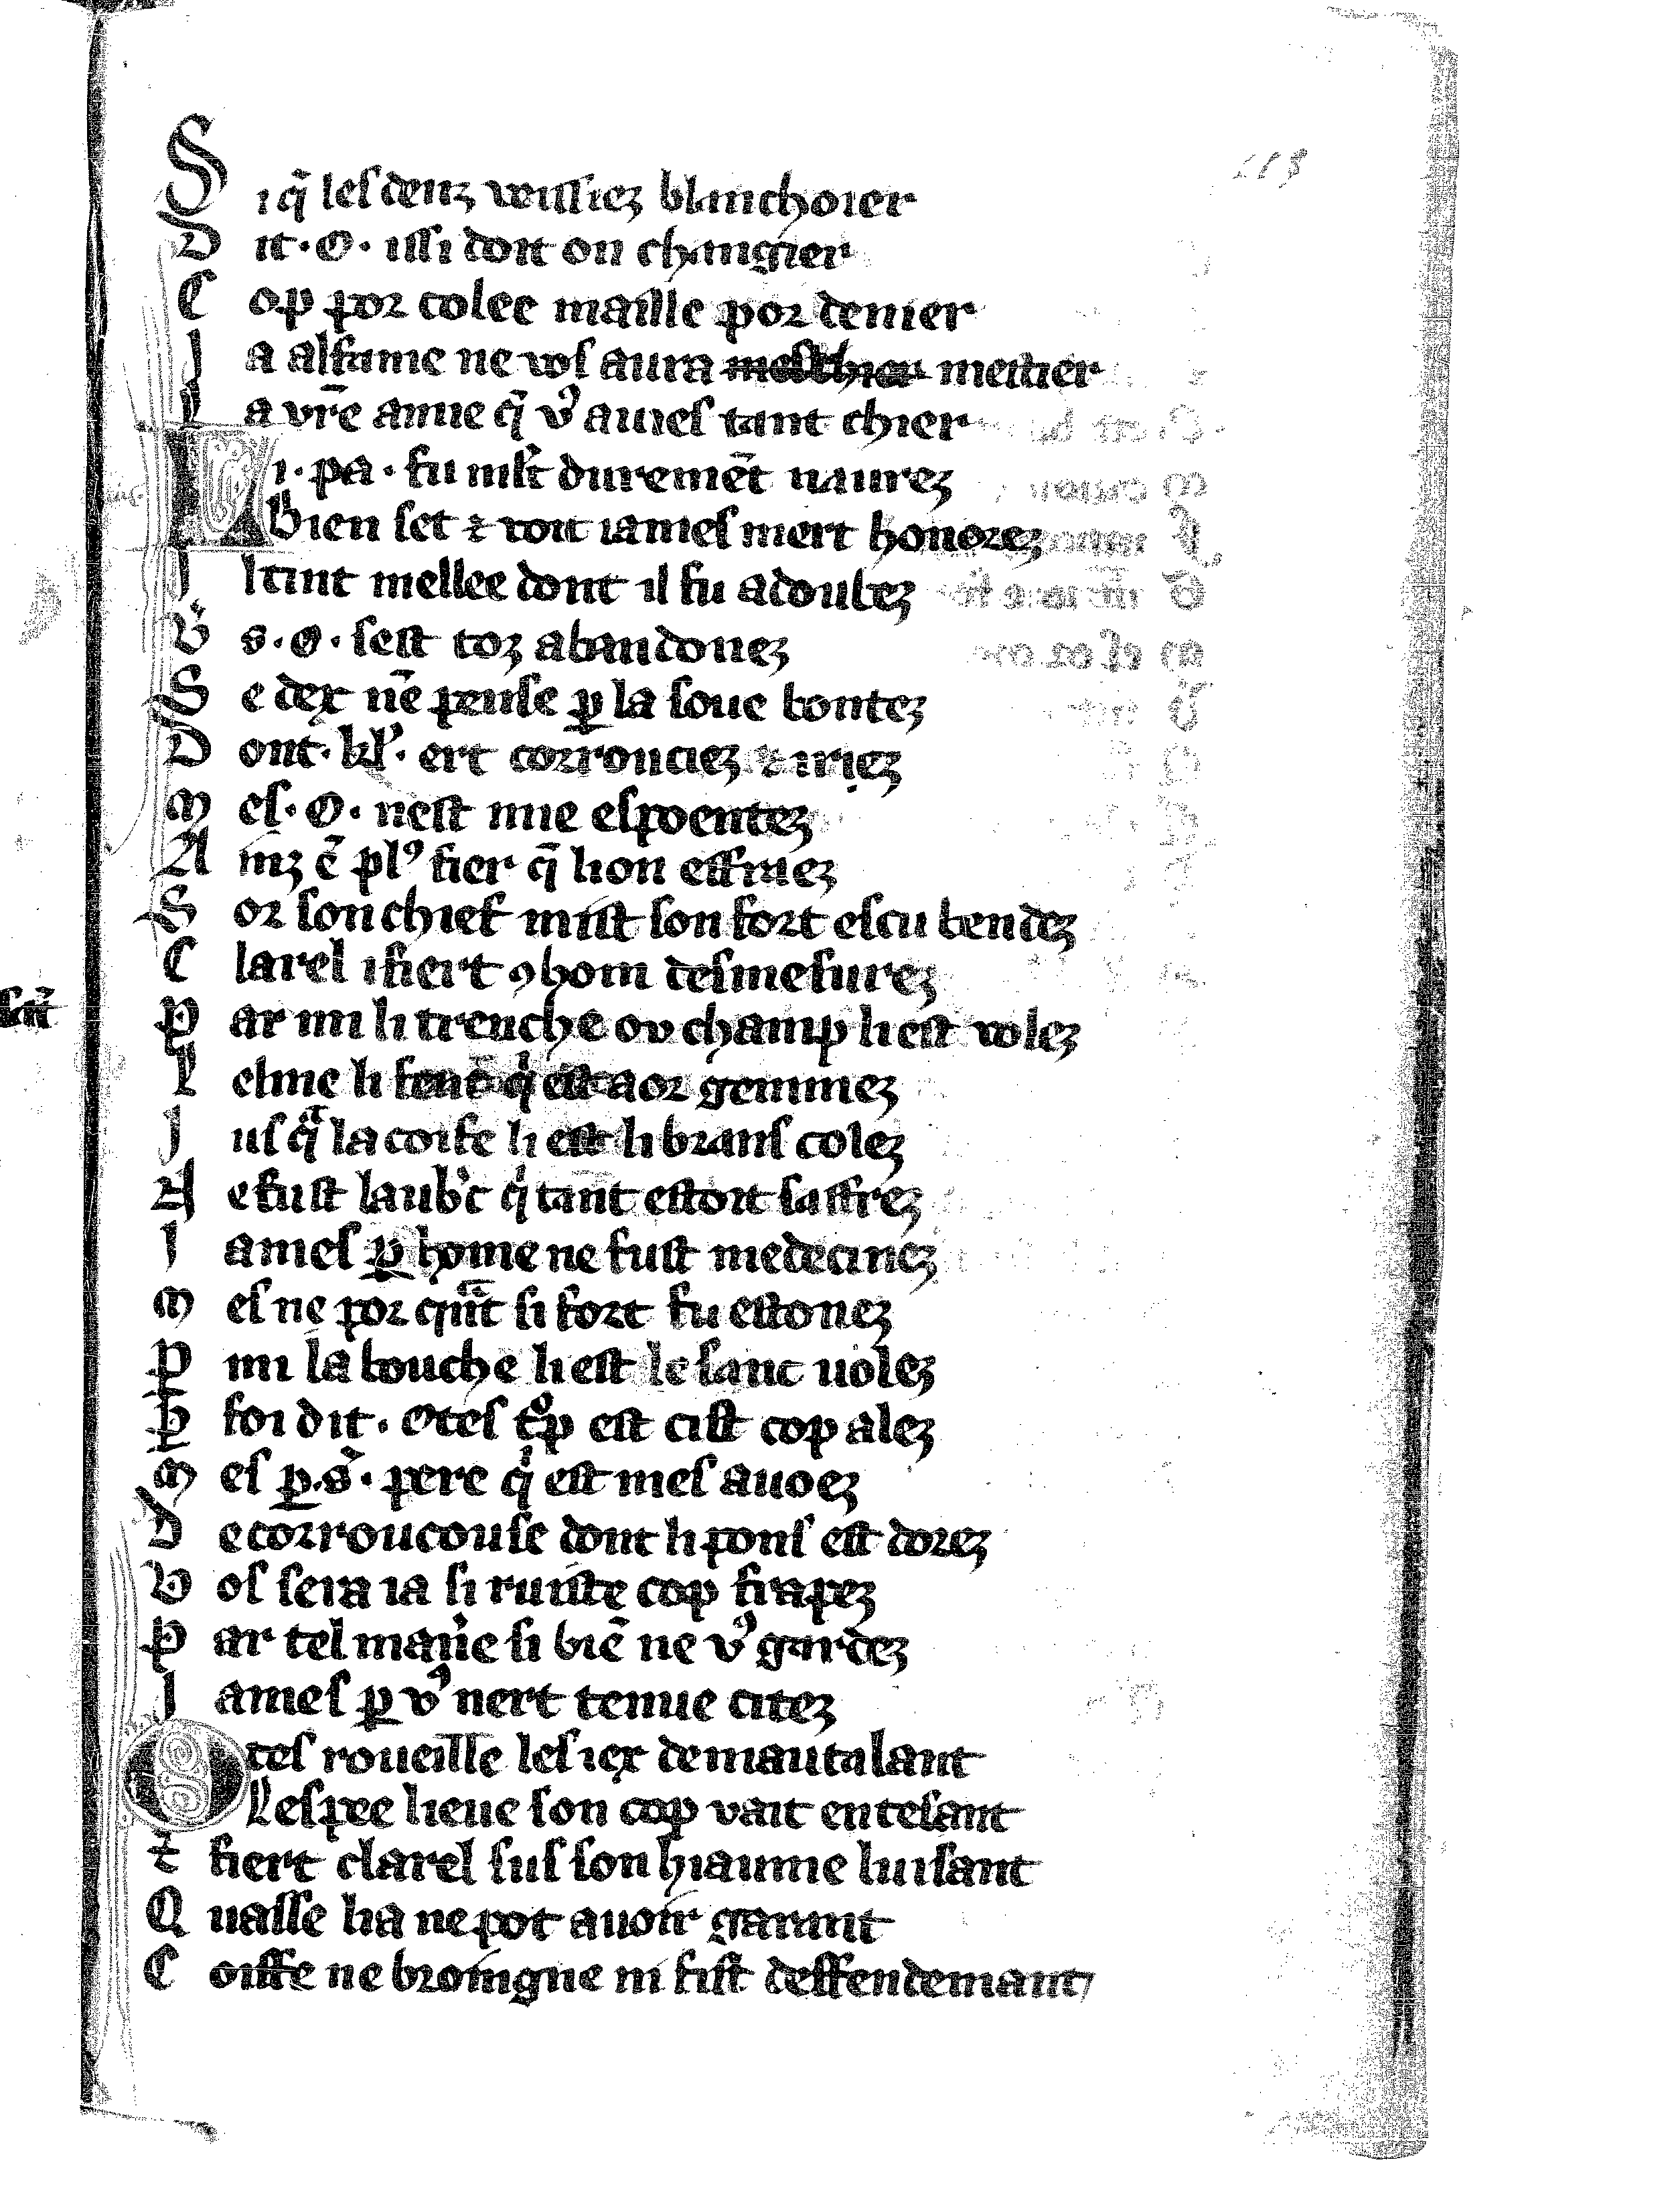 S i q̃ les denz veissiez blanchoier
D it · O · issi doit on changier
C op por colee maille por denier
J a alfame ne vos aura mestier
L a vr̃e amie q̃ vꝰ aviez tant chier
L i · pa · fu mlt̃ duremẽt naurez
B ien set ⁊ voit iames niert honorez
J l tint mellee dont il fu adoubez
V̾ s · O · sest toz abandonez
S e dex nẽ pense ꝑ la soue bontez
D ont · kl̾ · ert corrouciez ⁊ iriez
M es · O · nest mie espoentez
A inz ẽ plꝰ fier q̃ lion effraez
S or son chief mist son fort escu bendez
C larel i fiert ꝯ hom desmesurez
P ar mi li trenche ou champ li est volez
L elme li fent q̾ est a or gemmez
J usq̾ la coife li est li brans colez
N e fust laub̾c q̾ tant estoit saffrez
J ames ꝑ home ne fust medecinez
M es ne por qãt si fort fu estonez
P mi la bouche li est le sanc volez
P foi dit · Otes t̾p est cist cop alez
M es ꝑ · s̾ · pere q̾ est mes avoez
D e corroucouse dont li pons est dorez
V os sera ia si ruiste cop frapez
P ar tel mañie si biẽ ne vꝰ gardez
J ames ꝑ vꝰ nert tenue citez
O tes roueille les iex de mautalant
L espee lieue son cop vait entesant
⁊ fiert clarel sus son hiaume luisant
Q uasse lia ne pot avoir garant
C oiffe ne broingne ni fist deffendemant